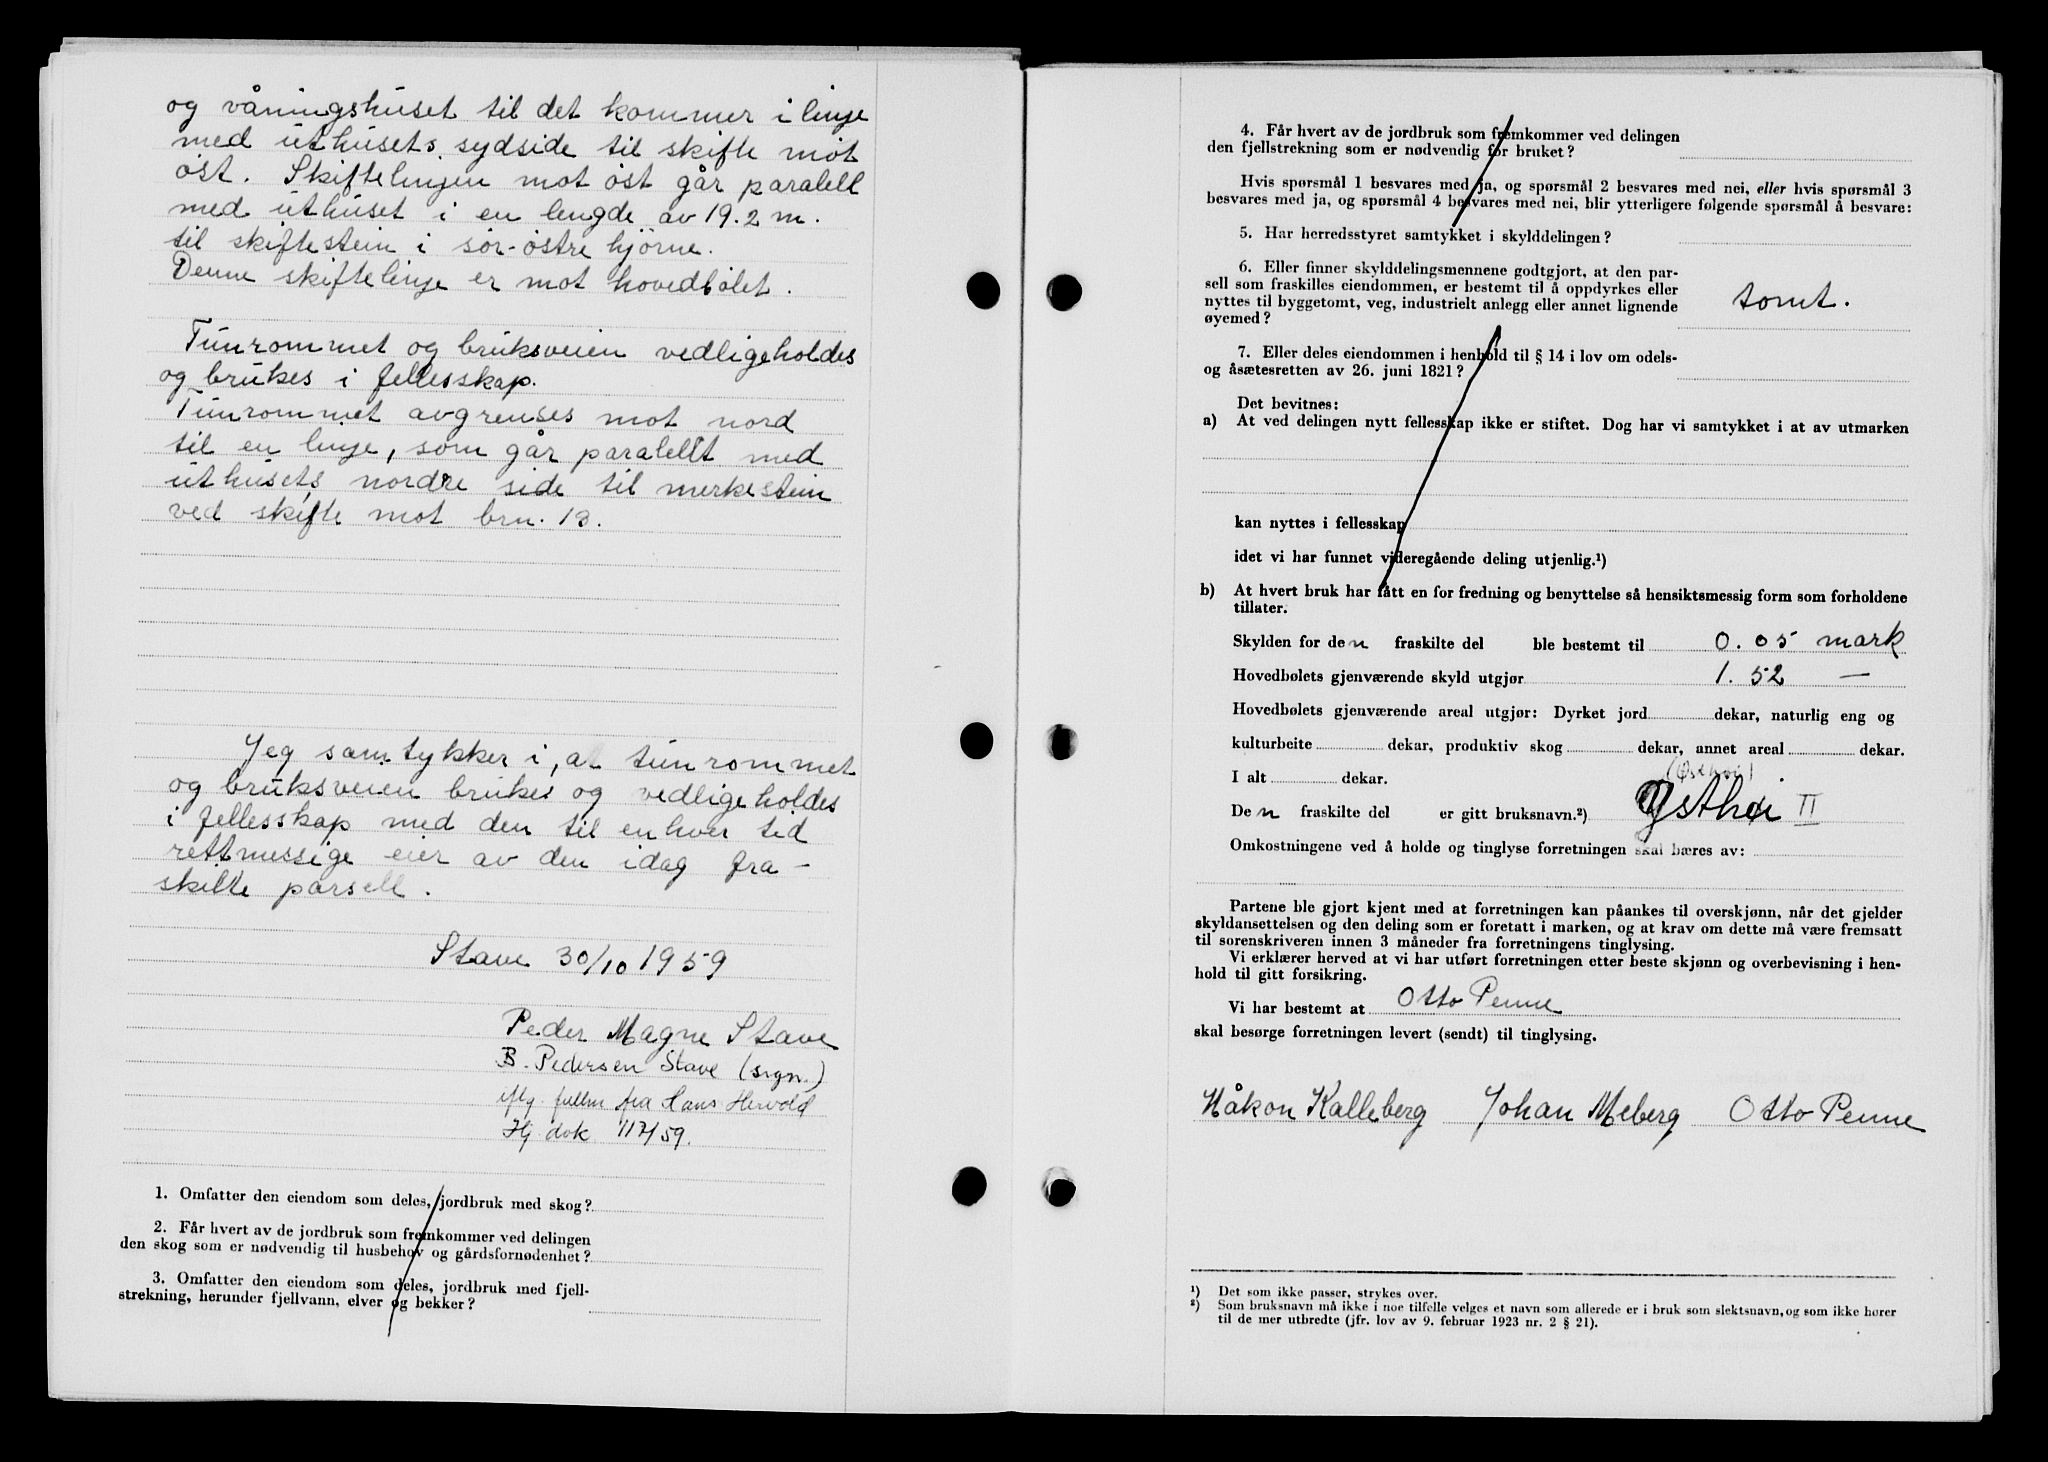 og våningshuset til det kommer i linje
med uthusets sydside til skifte mot
øst. Skiftelinjen mot øst går paralell
med uthuset i en lengde av 19.2 m.
til skiftestein i sør-østre hjørne.
Denne skiftelinje er mot hovedbølet.
Tunrommet og bruksveien vedligeholdes
og brukes i fellesskap.
Tunrommet avgrenses mot nord
til en linje, som går paralellt med
uthusets nordre side til merkestein
ved skifte mot brn. 13.
Jeg samtykker i, at tunrommet
og bruksveien brukes og vedligeholdes
i fellesskap med den til enhver tid
rettmessige eier av den idag fra-
skilte parsell.
Stave 30/10 1959
Peder Magne Stave
B. Pedersen Stave (sign.)
iflg. fullm fra Hans Hervold
Hj dok 117/59.
1. Omfatter den eiendom som deles, jordbruk med skog?
2. Får hvert av de jordbruk som fremkommer ved delingen
den skog som er nødvendig til husbehov og gårdsfornødenhet?
3. Omfatter den eiendom som deles, jordbruk med fjell-
strekning, herunder fjellvann, elver og bekker?
4. Får hvert av de jordbruk som fremkommer ved delingen
den fjellstrekning som er nødvendig for bruket?
Hvis spørsmål 1 besvares med ja, og spørsmål 2 besvares med nei, eller hvis spørsmål 3
besvares med ja, og spørsmål 4 besvares med nei, blir ytterligere følgende spørsmål å besvare:
5. Har herredsstyret samtykket i skylddelingen?
6. Eller finner skylddelingsmennene godtgjort, at den par-
sell som fraskilles eiendommen, er bestemt til å oppdyrkes eller
nyttes til byggetomt, veg, industrielt anlegg eller annet lignende
øyemed? tomt.
7. Eller deles eiendommen i henhold til § 14 i lov om odels-
og åsætesretten av 26. juni 1821?
Det bevitnes:
a) At ved delingen nytt fellesskap ikke er stiftet. Dog har vi samtykket i at av utmarken
kan nyttes i fellesskap
idet vi har funnet videregående deling utjenlig.¹)
b) At hvert bruk har fått en for fredning og benyttelse så hensiktsmessig form som forholdene
tillater.
Skylden for den fraskilte del ble bestemt til 0.05 mark
Hovedbølets gjenværende skyld utgjør 1.52 —
Hovedbølets gjenværende areal utgjør: Dyrket jord dekar, naturlig eng og
kulturbeite dekar, produktiv skog dekar, annet areal dekar.
I alt dekar. (Østhei)
Den fraskilte del er gitt bruksnavn.²) Østhei II
Omkostningene ved å holde og tinglyse forretningen skal bæres av:
Partene ble gjort kjent med at forretningen kan påankes til overskjønn, når det gjelder
skyldansettelsen og den deling som er foretatt i marken, og at krav om dette må være fremsatt
til sorenskriveren innen 3 måneder fra forretningens tinglysing.
Vi erklærer herved at vi har utført forretningen etter beste skjønn og overbevisning i hen-
hold til gitt forsikring.
Vi har bestemt at Otto Penne
skal besørge forretningen levert (sendt) til tinglysing.
Håkon Kalleberg Johan Meberg Otto Penne
¹) Det som ikke passer, strykes over.
²) Som bruksnavn må ikke i noe tilfelle velges et navn som allerede er i bruk som slektsnavn, og som ikke hører
til de mer utbredte (jfr. lov av 9. februar 1923 nr. 2 § 21).